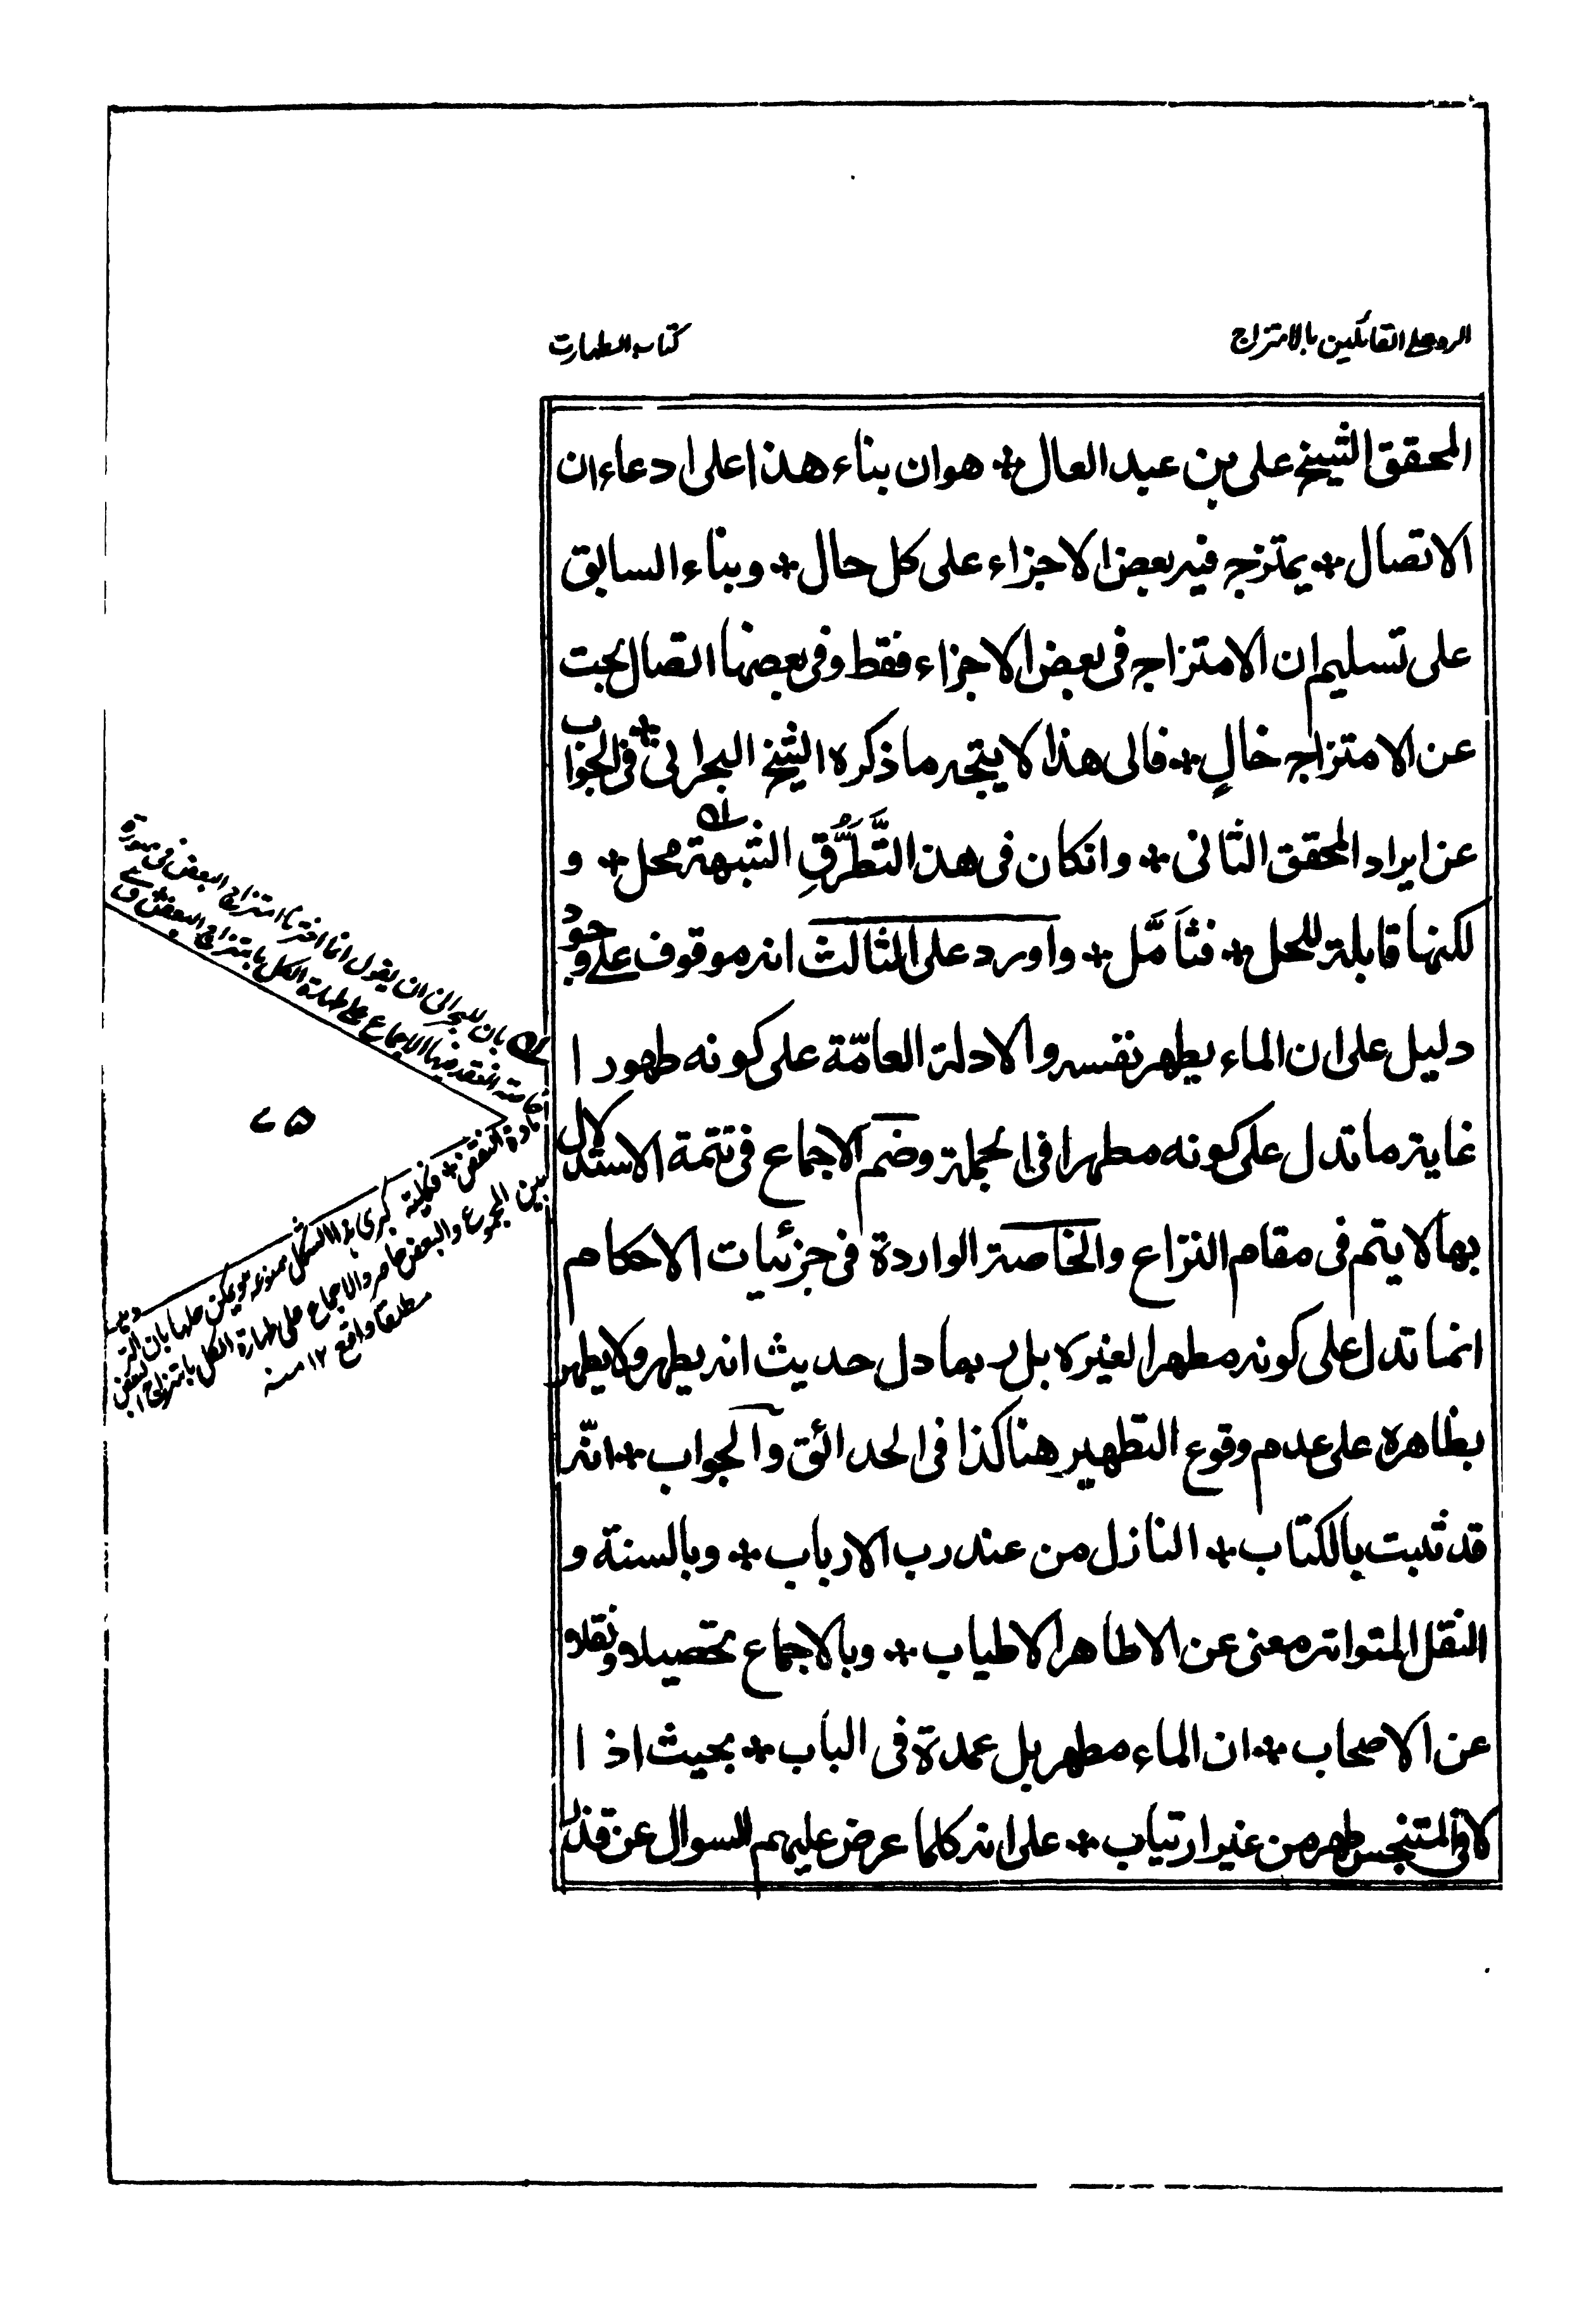 الرد على القائلين بالامتزاج
كتاب الطهارت
المحقق الشيخ على بن عبد العال * هو ان بناء هذا على ادعاء ان
الاتصال * يمتزج فيه بعض الاجزاء على كل حال * وبناء السابق
على تسليم ان الامتزاج فى بعض الاجزاء فقط وفى بعضها اتصال بحت
عن الامتزاج خالٍ * فالى هذا لا يتجه ما ذكره الشيخ البحرانى * فى الجواب
عن ايراد المحقق الثانى * وانكان فى هذ التَّطَرُّقِ الشبهة محل * و
لكنها قابلة للحل * فتاَمَّل * واورد على الثالث انه موقوف على وجود
دليل على ان الماء يطهر نفسه والادلة العامّة على كونه طهورا
غاية ما تدل على كونه مطهرا فى الجملة وضم الاجماع فى تتمة الاستدلال
بها لا يتم فى مقام النزاع والخاصة الواردة فى جزئيات الاحكام
انما تدل على كونه مطهرا لغيره بل ربما دل حديث انه يطهر ولا يطهر
بظاهره على عدم وقوع التطهير هنا كذا فى الحدائق والجواب * انّه
قد ثبت بالكتاب * النازل من عند رب الارباب * وبالسنة و
النقل المتواتر معنى عن الاطاهر الاطياب * وبالاجماع تحصيلا ونقلا
عن الاصحاب * ان الماء مطهر بل عمدة فى الباب * بحيث اذا
لاقى المتنجس طهر من غير ارتياب * على انه كلما عرض عليهم السوال عن قذر
بان للبحرانى ان يقول انما اخترنا امتزاج البعض فى صورة
انعقد فيها الاجماع على طهارة الكل بامتزاج البعض
مادة النقض * فكلية كبرى هذا الشكل ممنوعة ويمكن حلها بان
بين المجموع والبعض حاصر والاجماع على طهارة الكل بامتزاج البعض
مطلقا واقع ١٢ منه